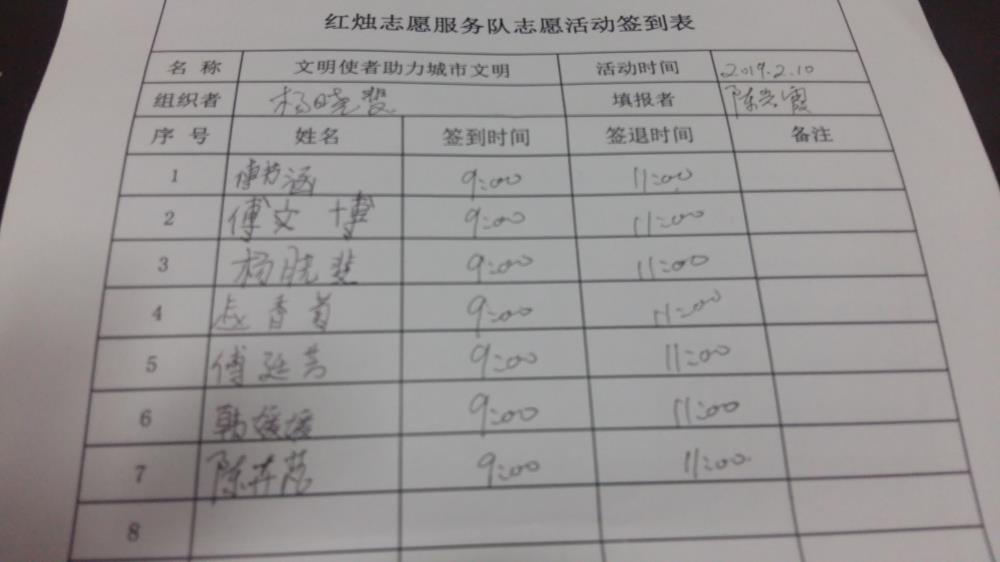 红烛志愿服务队志愿活动签到表
名 称 文明使者助力城市文明 活动时间 2019.2.10
组织者 杨晓斐 填报者 陈
序 号 姓名 签到时间 签退时间 备注
1 傅 涵 9:00 11:00
2 傅文博 9:00 11:00
3 杨晓斐 9:00 11:00
4 香 9:00 11:00
5 傅延芳 9:00 11:00
6 韩媛媛 9:00 11:00
7 陈 9:00 11:00
8